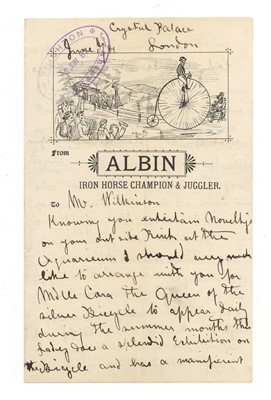 Crystal Palace
June
London
From
ALBIN
IRON HORSE CHAMPION & JUGGLER.
To Mr. Wilkinson
Knowing you entertain Noveltys
on your outside Rink at the
Aquarium I should very much
like to arrange with you for
Mdlle Cora the Queen of the
silver Bicycle to appear daily
during the summer months this
Lady does a splendid Exhibition on
the Bicycle and has a magnificent